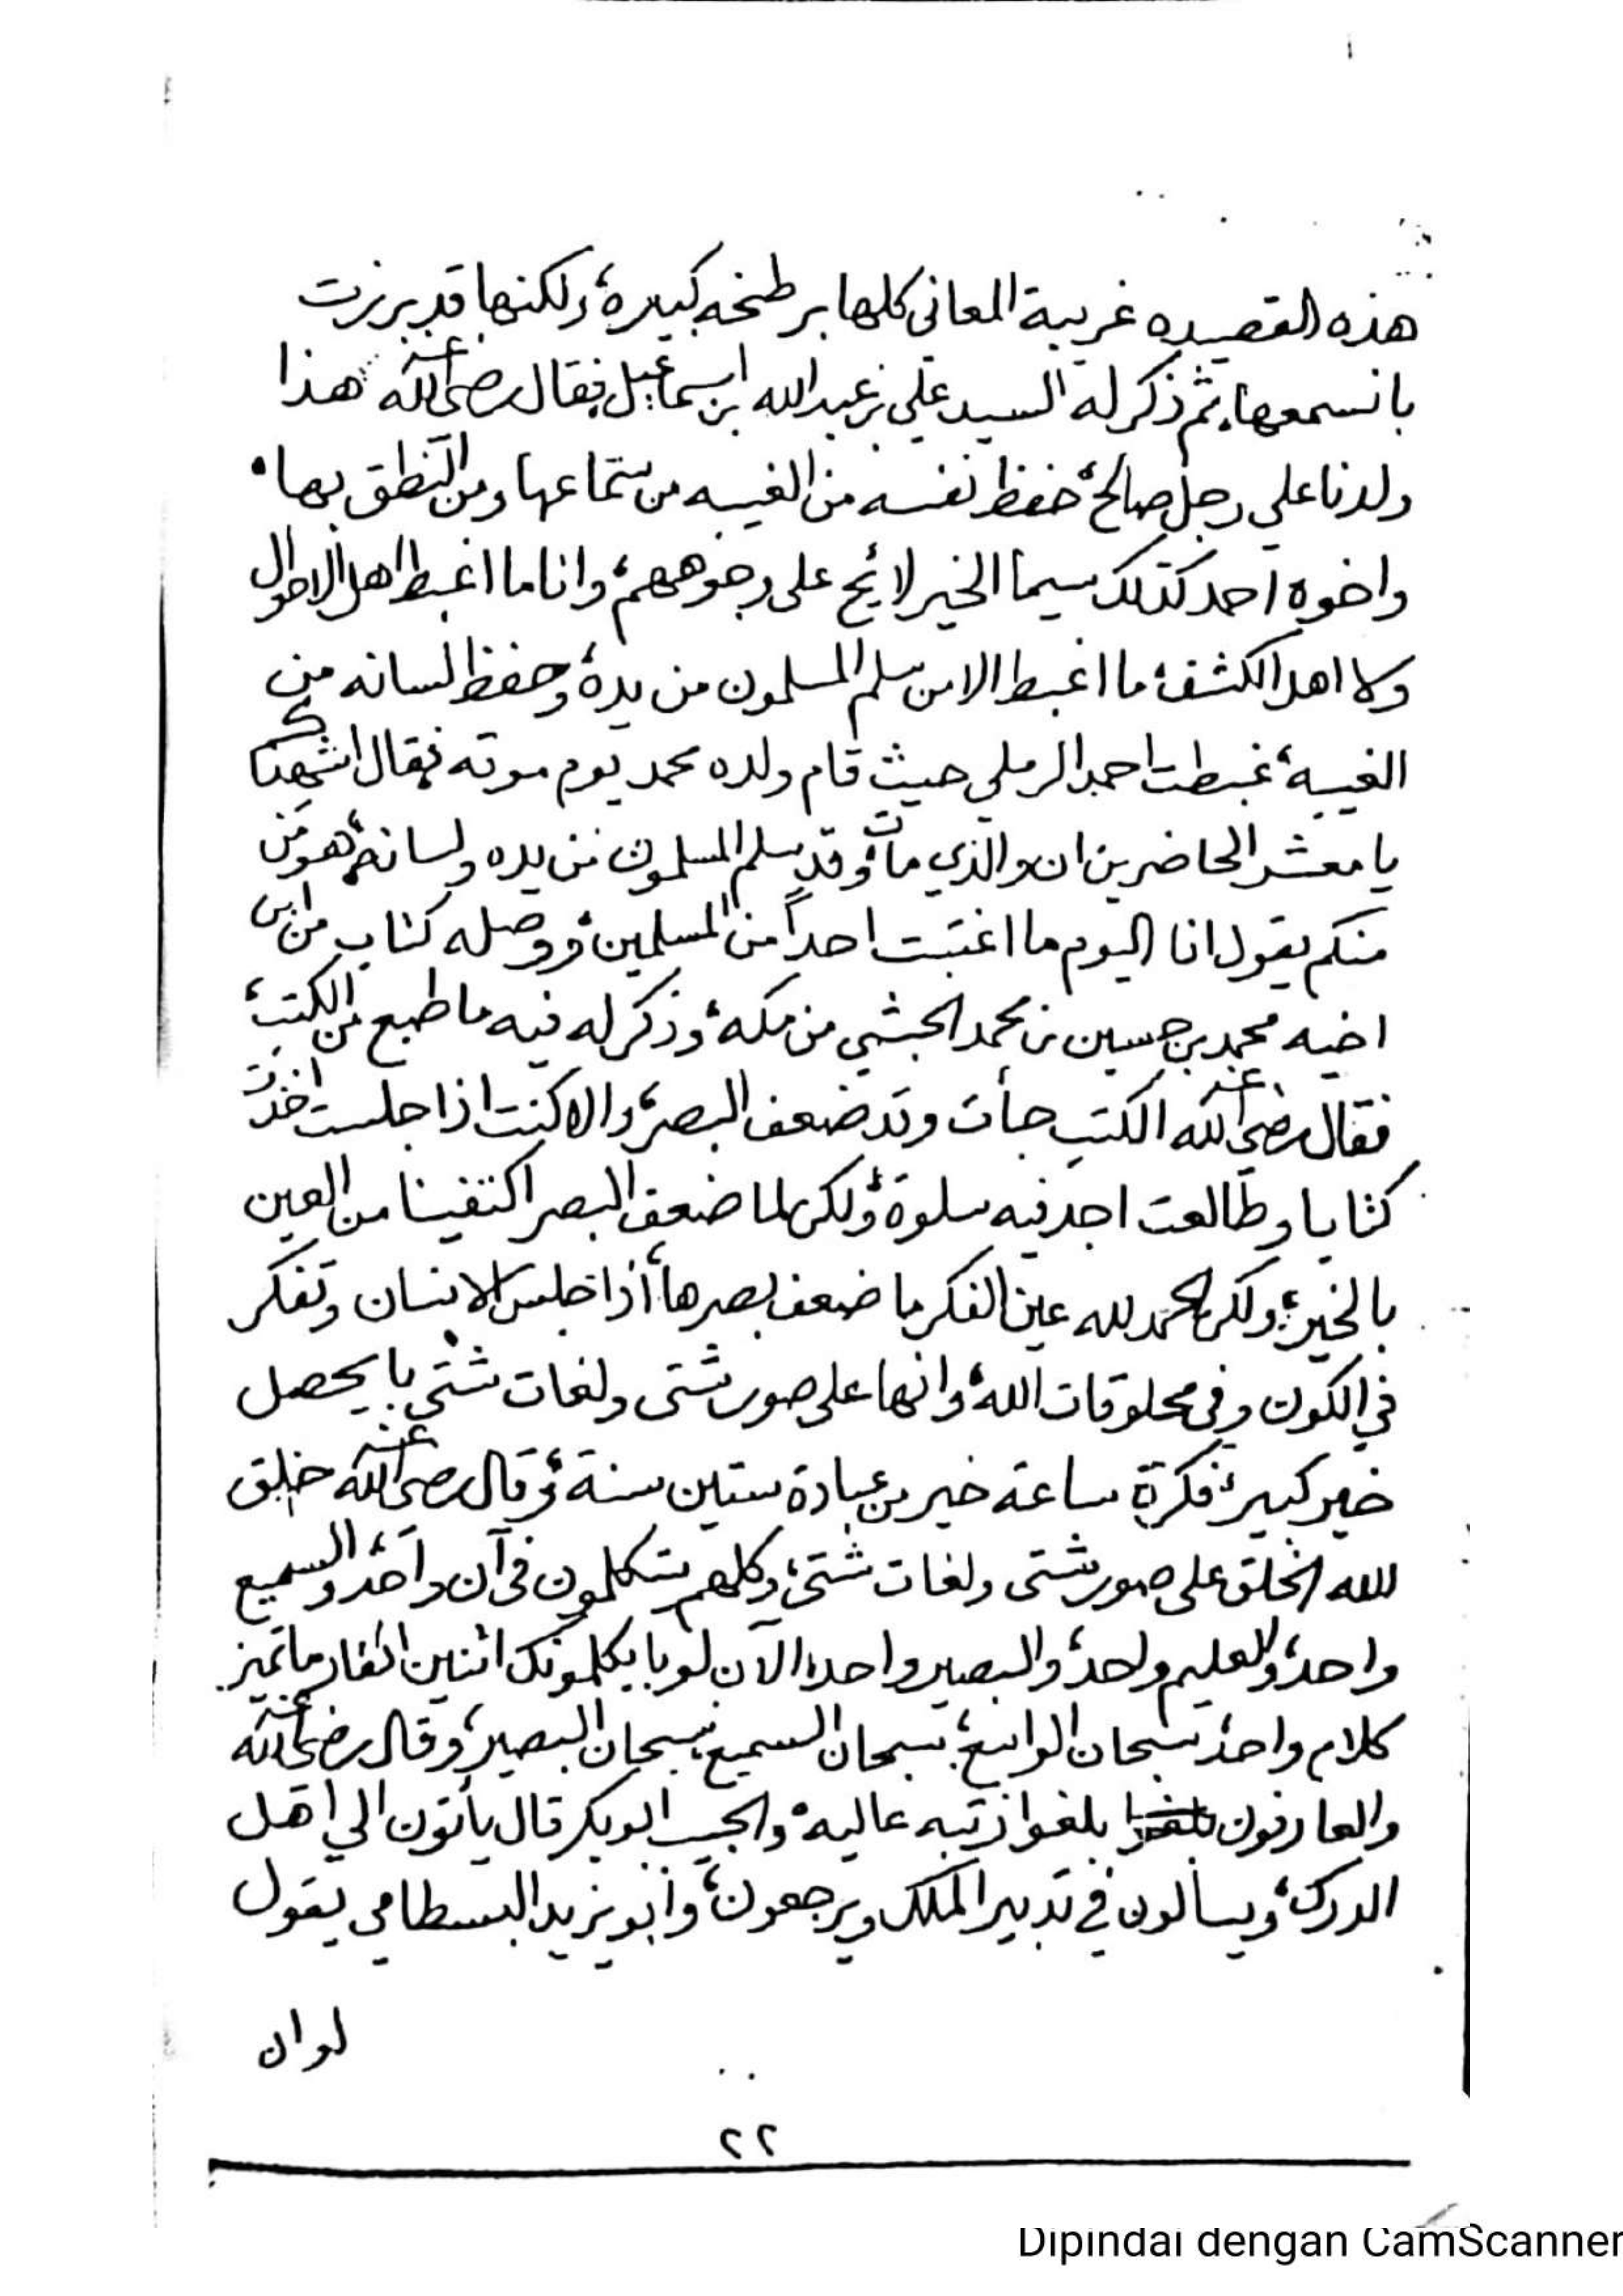 هذه القصيده غريبة المعاني كلها برطخه كبيره، ولكنها قد برزت
بانسمعها، ثم ذكر له السيد علي بن عبدالله ابن اسماعيل فقال رضي الله عنه هذا
ولدنا علي رجل صالح، حفظ نفسه من الغيبه من ستماعها ومن النطق بها،
واخوه احمد كذلك سيما الخير لائح على وجوههم، وانا ما اغبط اهل الاحوال
ولا اهل الكشف، ما اغبط الا من سلم المسلمون من يده، وحفظ لسانه من
الغيبه، غبطت احمد الرملي حيث قام ولده محمد يوم موته فقال اشهدكم
يا معشر الحاضرين ان والذي مات، وقد سلم المسلمون من يده ولسانه، هو من
منكم يقول انا اليوم ما اغتبت احداً من المسلمين، ووصله كتاب من ابن
اخيه محمد بن حسين بن محمد الحبشي من مكه، وذكر له فيه ما طبع من الكتب،
فقال رضي الله عنه الكتب جأت وقد ضعف البصر، والا كنت اذا جلست اخذت
كتابا وطالعت اجد فيه سلوة، ولكن لما ضعف البصر اكتفينا من العين
بالخير، ولكن الحمد لله عين الفكر ما ضعف بصرها، أذا جلس الانسان وتفكر
في الكون وفي مخلوقات الله، وانها على صور شتى ولغات شتى بايحصل
خير كبير، فكرة ساعة خير من عبادة ستين سنة، وقال رضي الله عنه خلق
الله الخلق على صور شتى ولغات شتى، وكلهم يتكلمون في آن واحد، والسميع
واحد، والعليم واحد، والبصير واحد، الآن لو بايكلمونك اثنين انفار ماتميز
كلام واحد، سبحان الواسع، سبحان السميع، سبحان البصير، وقال رضي الله عنه
والعارفون بلغوا رتبه عاليه، والحبيب ابوبكر قال يأتون الي اهل
الدرك، ويسألون في تدبير الملك ويرجعون، وأبو يزيد البسطامي يقول
لو ان
٢٢
Dipindai dengan CamScanner